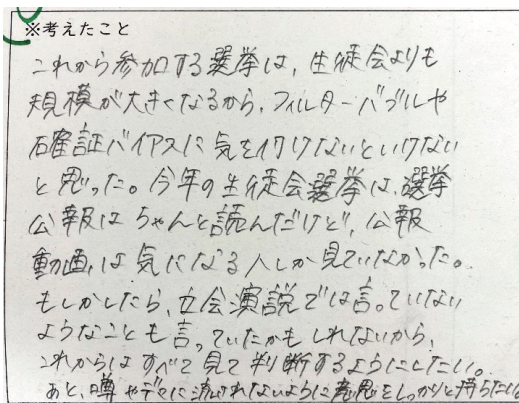 ※考えたこと
これから参加する選挙は、生徒会よりも
規模が大きくなるから、フィルターバブルや
確証バイアスに気を付けないといけない
と思った。今年の生徒会選挙は、選挙
公報はちゃんと読んだけど、公報
動画は気になる人しか見ていなかった。
もしかしたら、立会演説では言っていない
ようなことも言っていたかもしれないから、
これからはすべて見て判断するようにしたい。
あと、噂やデマに流されないように意思をしっかりと持ちたい。